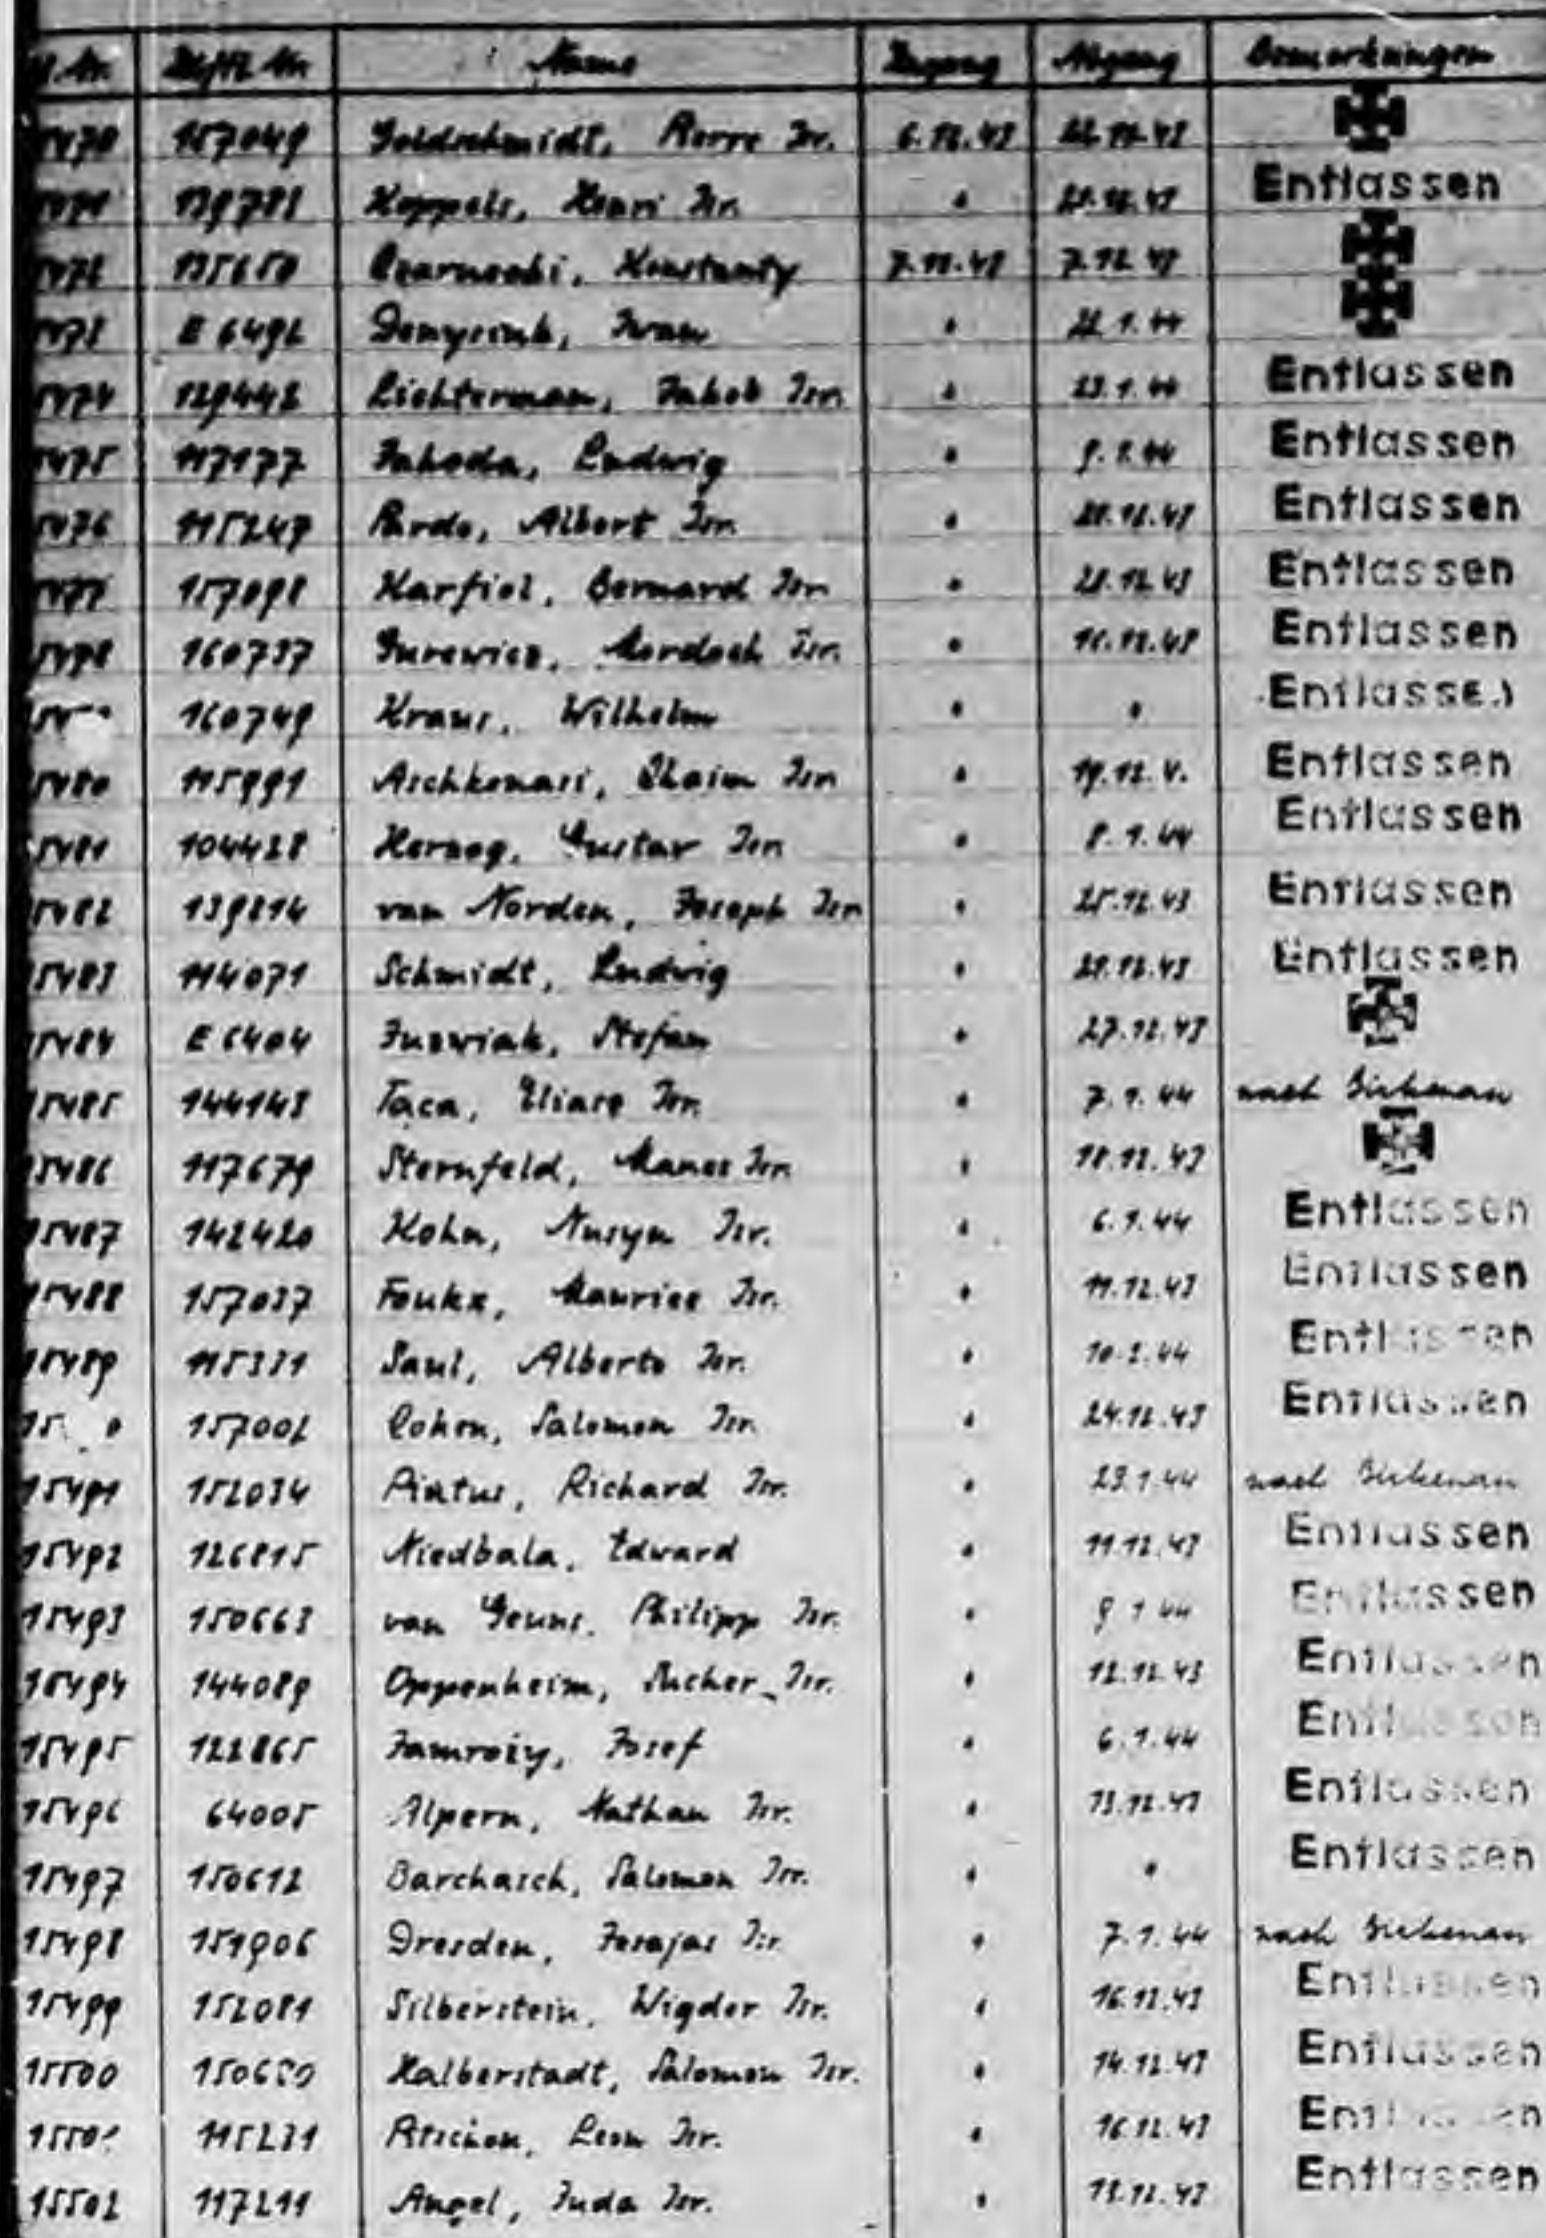 Häftl. Nr. Name Zugang Abgang Bemerkungen
157049 Goldschmidt, Pierre Isr. 6.12.43 22.12.43
139783 Koppels, Henri Isr. " 28.12.43 Entlassen
135650 Czarnecki, Konstanty 7.12.43 7.12.43
E 6492 Iwan " 22.1.44
129442 Lichterman, Jakob Isr. " 23.1.44 Entlassen
117177 Jahoda, Ludwig " 9.1.44 Entlassen
115247 Pardo, Albert Isr. " 28.12.43 Entlassen
157098 Karfiol, Bernard Isr. " 28.12.43 Entlassen
160737 Gurewicz, Mordoch Isr. " Entlassen
160749 Kraus, Wilhelm " " Entlassen
15480 115991 Aschkenasi, Chaim Isr. " Entlassen
15481 104428 Herzog, Gustav Isr. " 8.1.44 Entlassen
15482 139814 van Norden, Joseph Isr. " 25.12.43 Entlassen
15483 114071 Schmidt, Ludwig " 28.12.43 Entlassen
15484 E 6404 Juzwiak, Stefan " 27.12.43
15485 144143 Taca, Eliare Isr. " 7.1.44 nach Birkenau
15486 117679 Sternfeld, Manes Isr. " 18.12.43
15487 142420 Kohn, Nusyn Isr. " 6.1.44 Entlassen
15488 157037 Foukx, Maurice Isr. " 11.12.43 Entlassen
15489 115331 Saul, Alberto Isr. " 10.2.44 Entlassen
157002 Cohen, Salomon Isr. " 24.12.43 Entlassen
15491 152034 Piatus, Richard Isr. " 23.1.44 nach Birkenau
15492 126815 Niedbala, Edward " 11.12.43 Entlassen
15493 150663 van Geuns, Philipp Isr. " 9.1.44 Entlassen
15494 144089 Oppenheim, Sucher Isr. " 12.12.43 Entlassen
15495 122865 Jamrozy, Josef " 6.1.44 Entlassen
15496 64005 Alpern, Nathan Isr. " 13.12.43 Entlassen
15497 150612 Barchasch, Salomon Isr. " " Entlassen
15498 151906 Dresden, Jesajas Isr. " 7.1.44 nach Birkenau
15499 152081 Silberstein, Wigdor Isr. " 16.12.43 Entlassen
15500 Halberstadt, Salomon Isr. " 14.12.43 Entlassen
15501 115231 Leon Isr. " 16.12.43 Entlassen
15502 117211 Angel, Juda Isr. " Entlassen